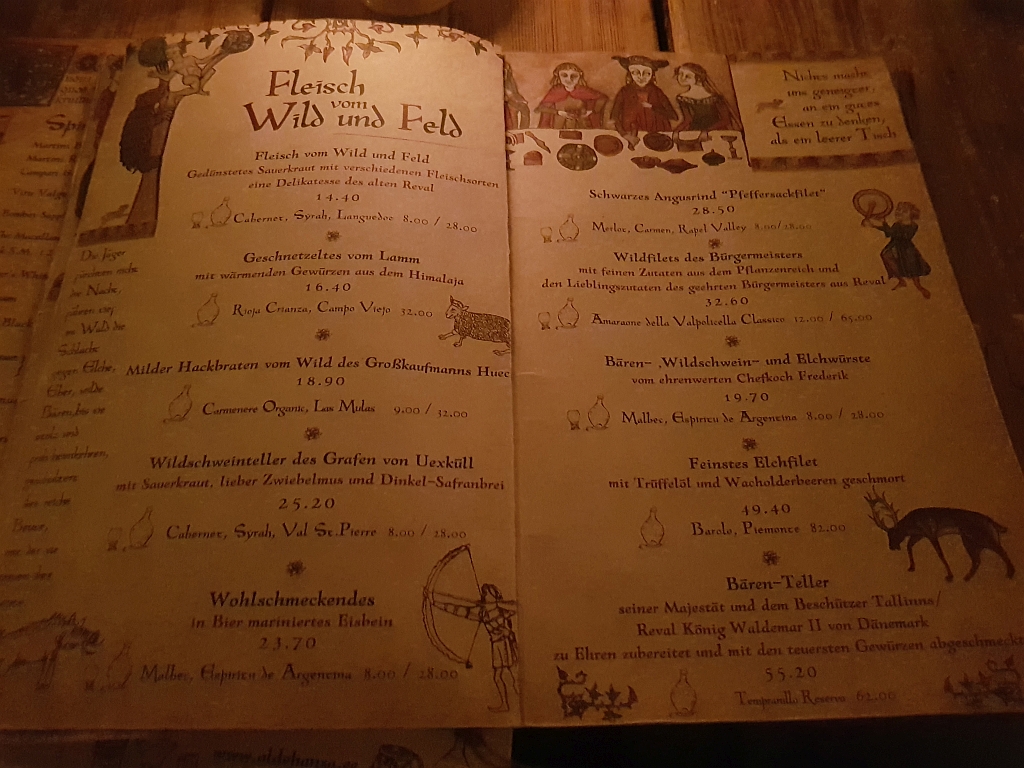 Fleisch
vom
Wild und Feld
Fleisch vom Wild und Feld
Gedünstetes Sauerkraut mit verschiedenen Fleischsorten
eine Delikatesse des alten Reval
14.40
Cabernet, Syrah, Languedoc 8.00 / 28.00
Geschnetzeltes vom Lamm
mit wärmenden Gewürzen aus dem Himalaja
16.40
Rioja Crianza, Campo Viejo 32.00
Milder Hackbraten vom Wild des Großkaufmanns Huec
18.90
Carmenere Organic, Las Mulas 9.00 / 32.00
Wildschweinteller des Grafen von Uexküll
mit Sauerkraut, lieber Zwiebelmus und Dinkel-Safranbrei
25.20
Cabernet, Syrah, Val St.Pierre 8.00 / 28.00
Wohlschmeckendes
in Bier mariniertes Eisbein
23.70
Malbec, Espiritu de Argentina 8.00 / 28.00
Die Jäger
fürchten nicht
die Nacht,
im Wald die
Schlacht
gegen Elche,
Eber, wilde
Nichts macht
uns geneigter,
an ein gutes
Essen zu denken,
als ein leerer Tisch
Schwarzes Angusrind "Pfeffersackfilet"
28.50
Merlot, Carmen, Rapel Valley 8.00/28.00
Wildfilets des Bürgermeisters
mit feinen Zutaten aus dem Pflanzenreich und
den Lieblingszutaten des geehrten Bürgermeisters aus Reval
32.60
Amarone della Valpolicella Classico 12.00 / 65.00
Bären- ,Wildschwein- und Elchwürste
vom ehrenwerten Chefkoch Frederik
19.70
Malbec, Espiritu de Argentina 8.00 / 28.00
Feinstes Elchfilet
mit Trüffelöl und Wacholderbeeren geschmort
49.40
Barolo, Piemonte 82.00
Bären-Teller
seiner Majestät und dem Beschützer Tallinns/
Reval König Waldemar II von Dänemark
zu Ehren zubereitet und mit den teuersten Gewürzen abgeschmeckt
55.20
Tempranillo Reserva 62.00